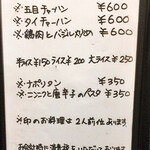 ※五目チャーハン ¥600
※タイチャーハン ¥600
※鶏肉とバジル炒め ¥600
半ライス¥150 ライス¥200 大ライス¥250
※ナポリタン ¥350
※ニンニクと唐辛子のパスタ ¥350
※印のお料理は2人前仕